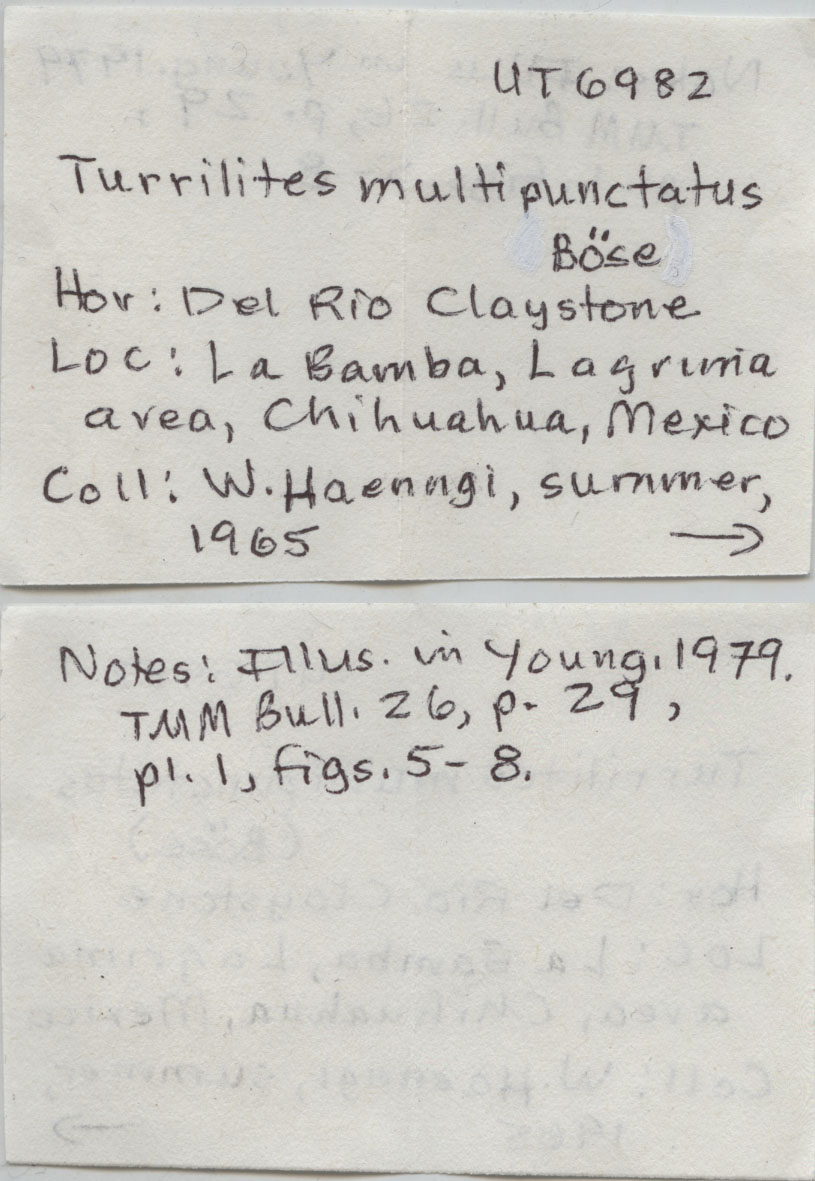 UT6982
Turrilites multipunctatus
Böse
Hor: Del Rio Claystone
Loc: La Bamba, Lagrima
area, Chihuahua, Mexico
Coll: W. Haenngi, summer,
1965 →
Notes: Illus. in Young. 1979.
TMM Bull. 26, p. 29,
pl. 1, figs. 5-8.